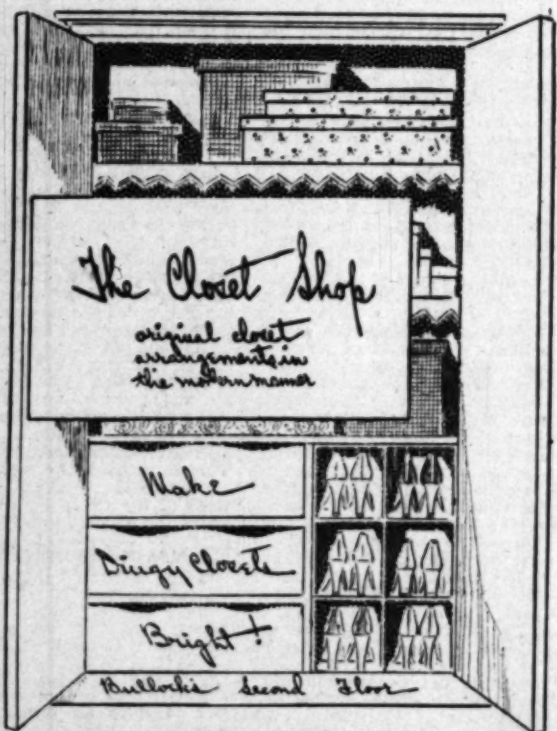 The Closet Shop
original closet
arrangements in
the modern manner
Make
Dingy Closets
Bright!
Bullock's Second Floor